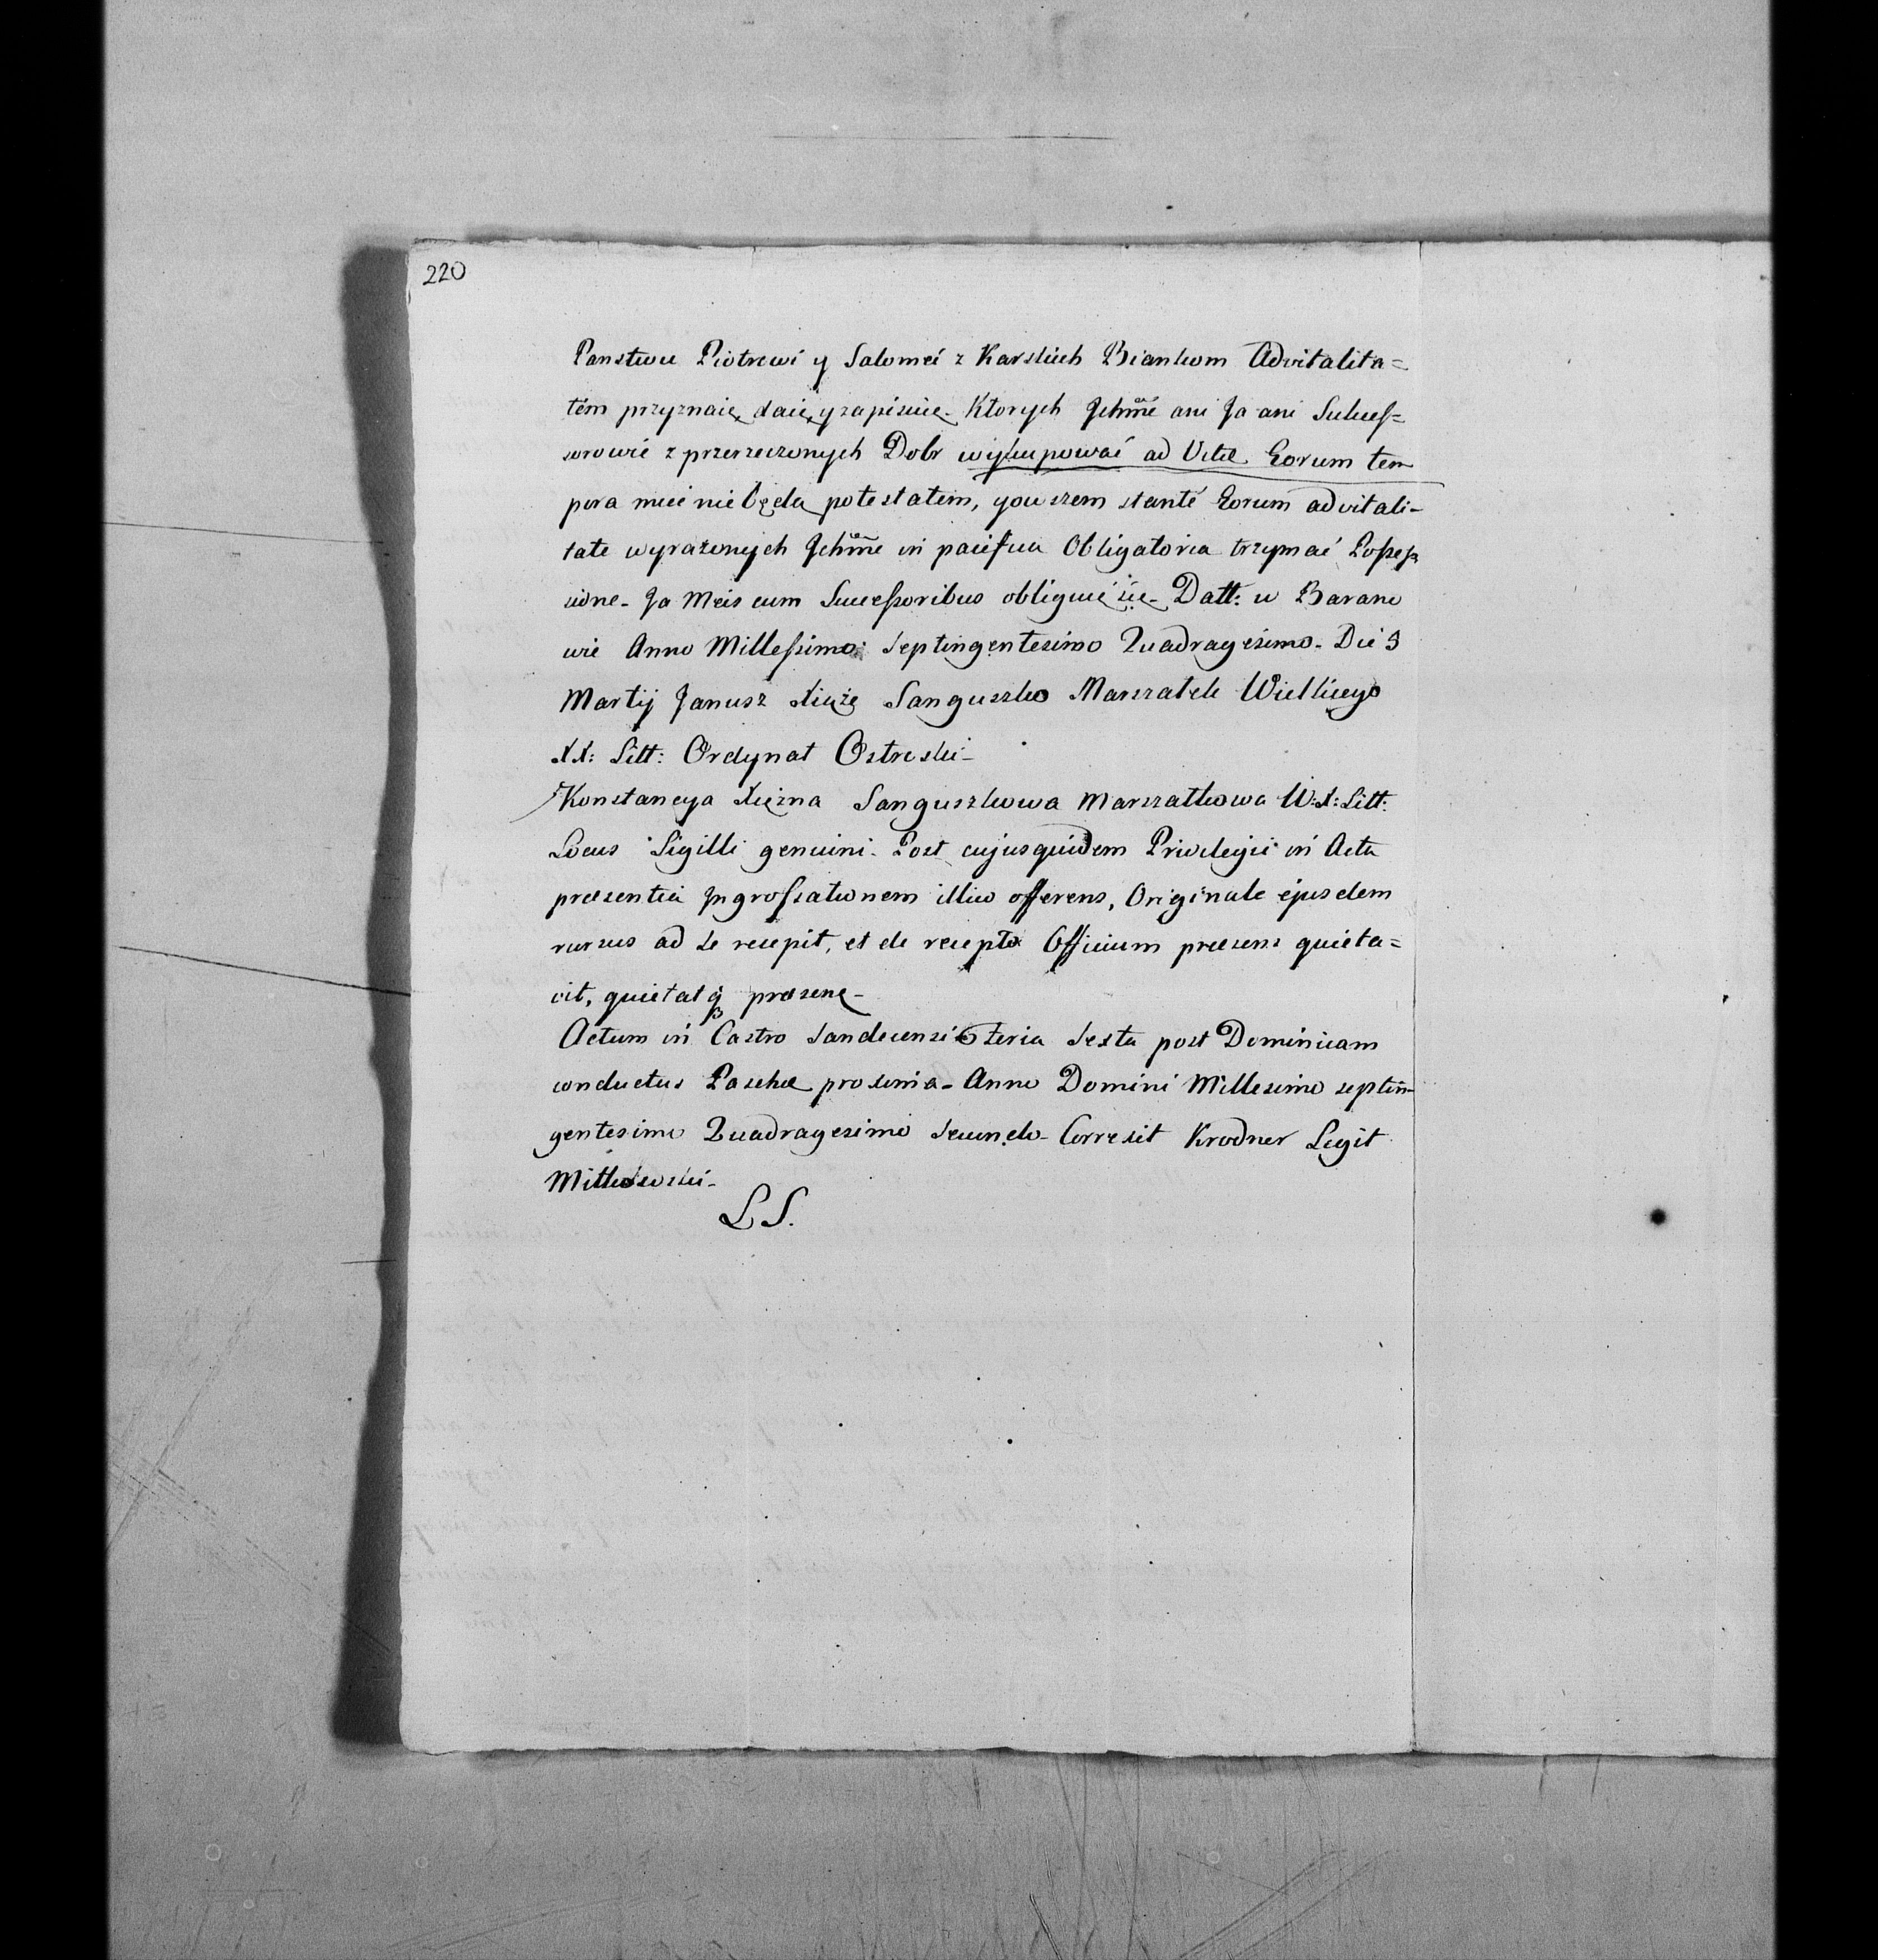 220
Panstwu Piotrowi y Salomei z Karskich Biankom Advitalita=
tem przyznaię, daię, y zapisuię. Ktorych Ichmć ani Ja ani Sukceſ=
sorowie z przerzeczonych Dobr wykupować ad Vitæ Eorum tem
pora mieć nie będą potestatem, y owszem stante Eorum advitali-
tate wyrażonych Ichmć in pacifica Obligatoria trzymać Poſseſs
sione. Ja Meis cum Succeſsoribus obliguię się. Datt: w Barano
wie Anno Milleſsimo Septingentesimo Quadragesimo. Die 3
Martij Janusz Xiąże Sanguszko Marszałek Wielkiego
X X: Litt: Ordynat Ostrski.
Konstancya Xiężna Sanguszkowa Marszałkowa W: X: Litt:
Locus Sigilli genuini. Post cujusquidem Privilegii in Acta
præsentia Ingroſsationem illico offerens, Originale ejusdem
rursus ad se recepit, et de recepto Officium præsens quieta=
vit, quietatq̃ præsens.
Actum in Castro Sandecensi Feria Sexta post Dominicam
conductus Paschæ proxima. Anno Domini Millesimo septin-
gentesimo Quadragesimo secundo. Correxit Krodner Legit
Mitkowski.
L S.